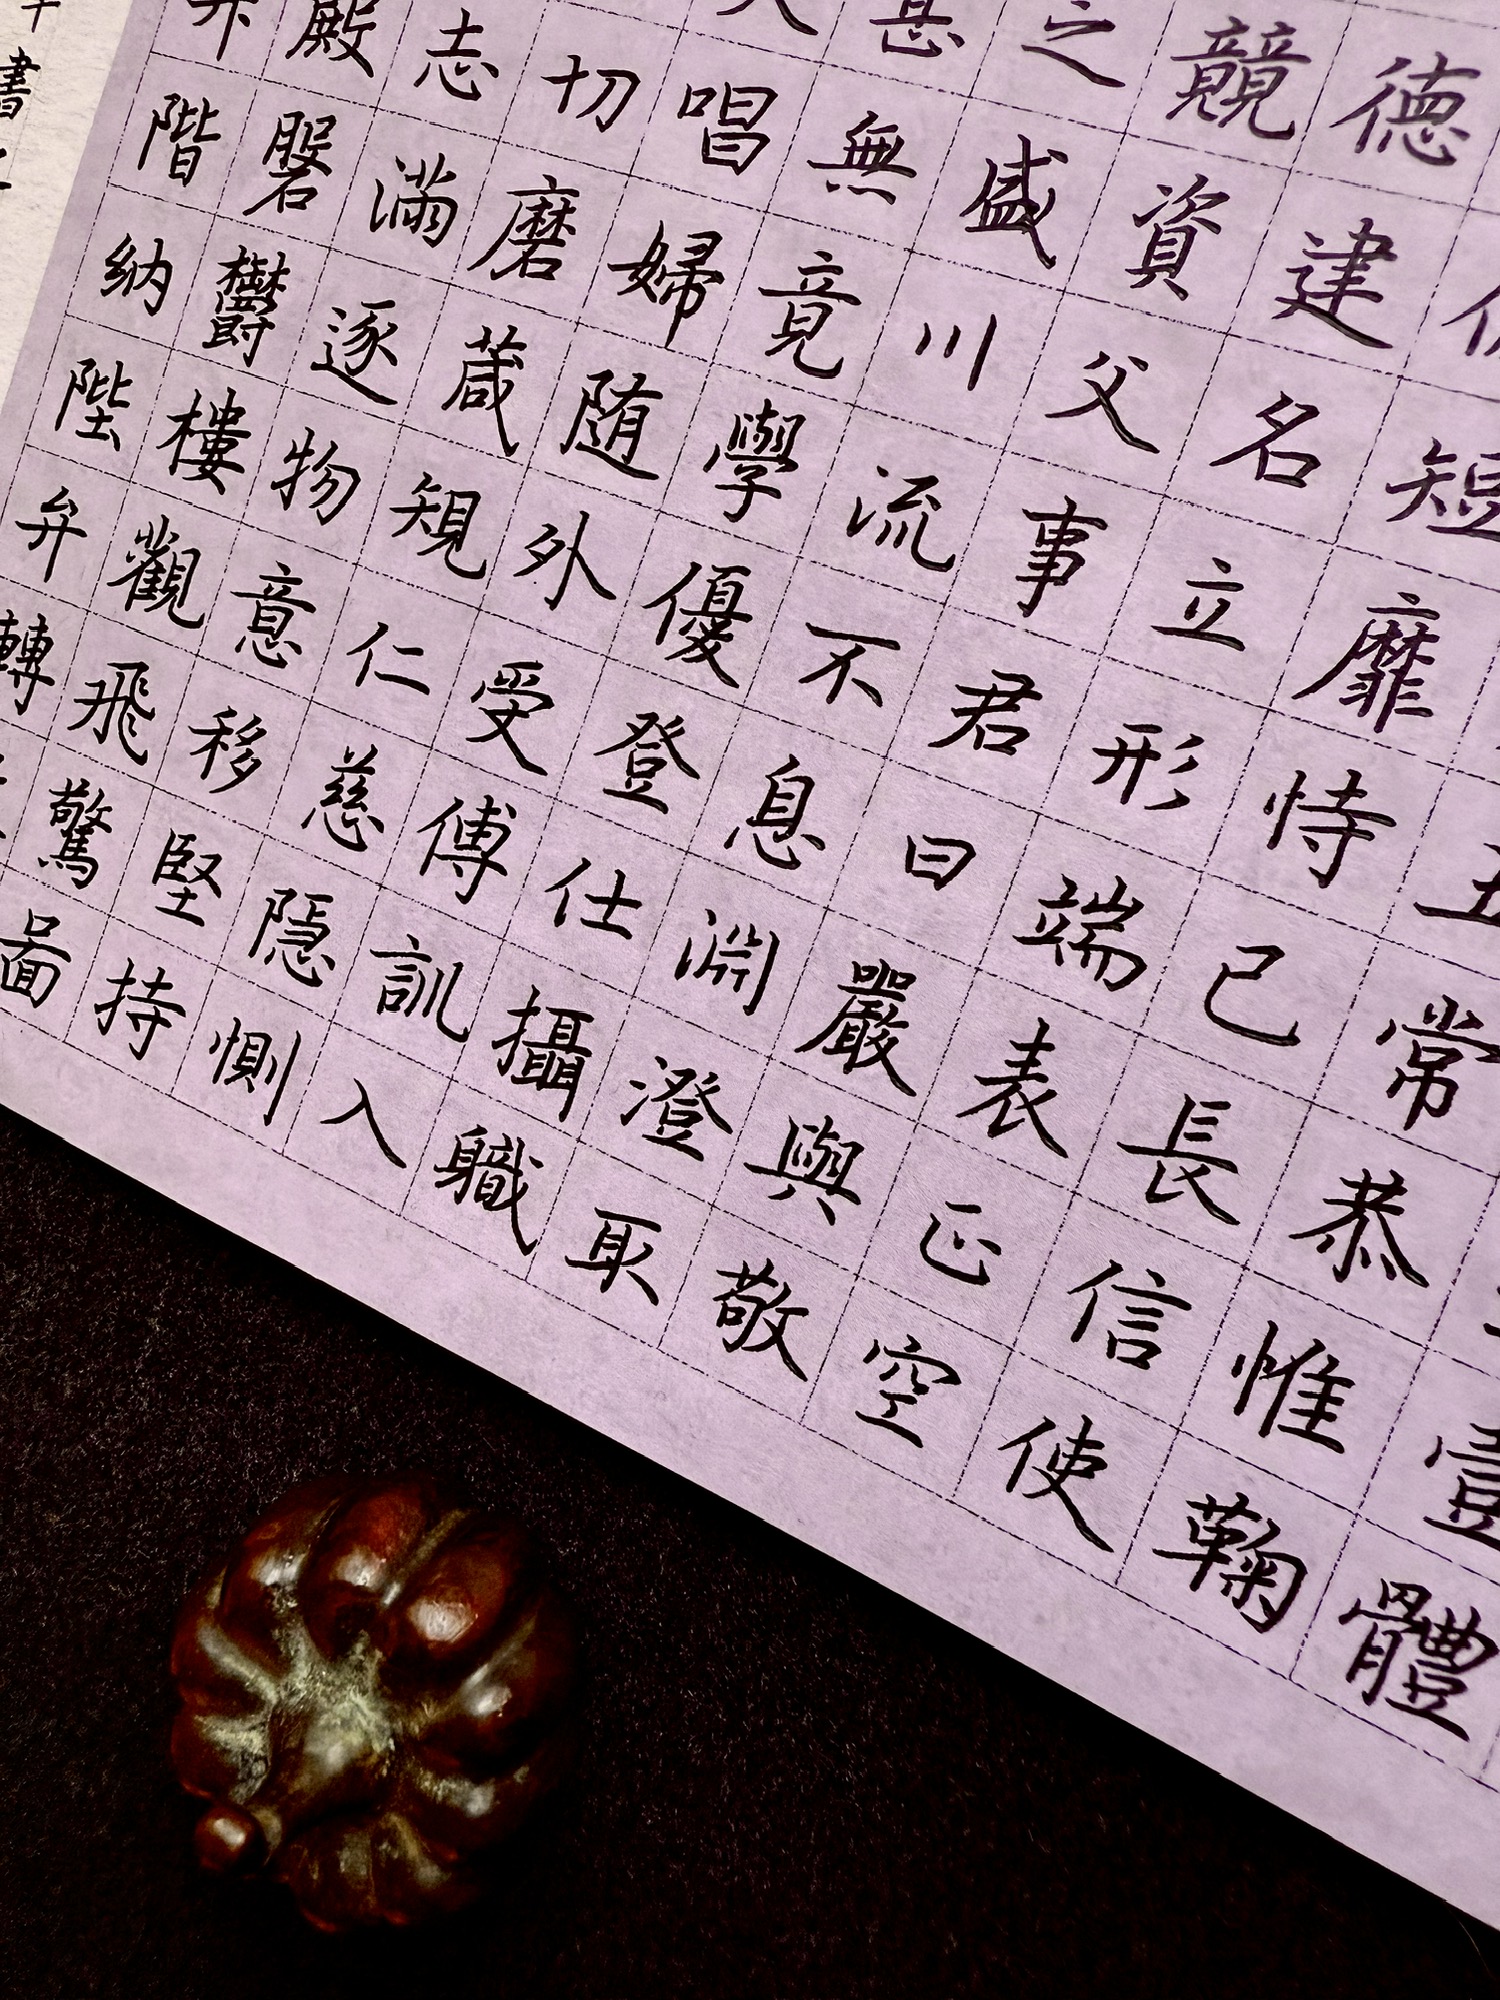 壹體
常恭惟鞠
短靡恃己長信使
德建名立形端表正空
競資父事君曰嚴與敬
之盛川流不息淵澄取
甚無竟學優登仕攝職
唱婦随外受傅訓入
切磨葴規仁慈隐惻
志滿逐物意移堅持
殿磐鬱樓觀飛驚啚
階納陛弁轉
書